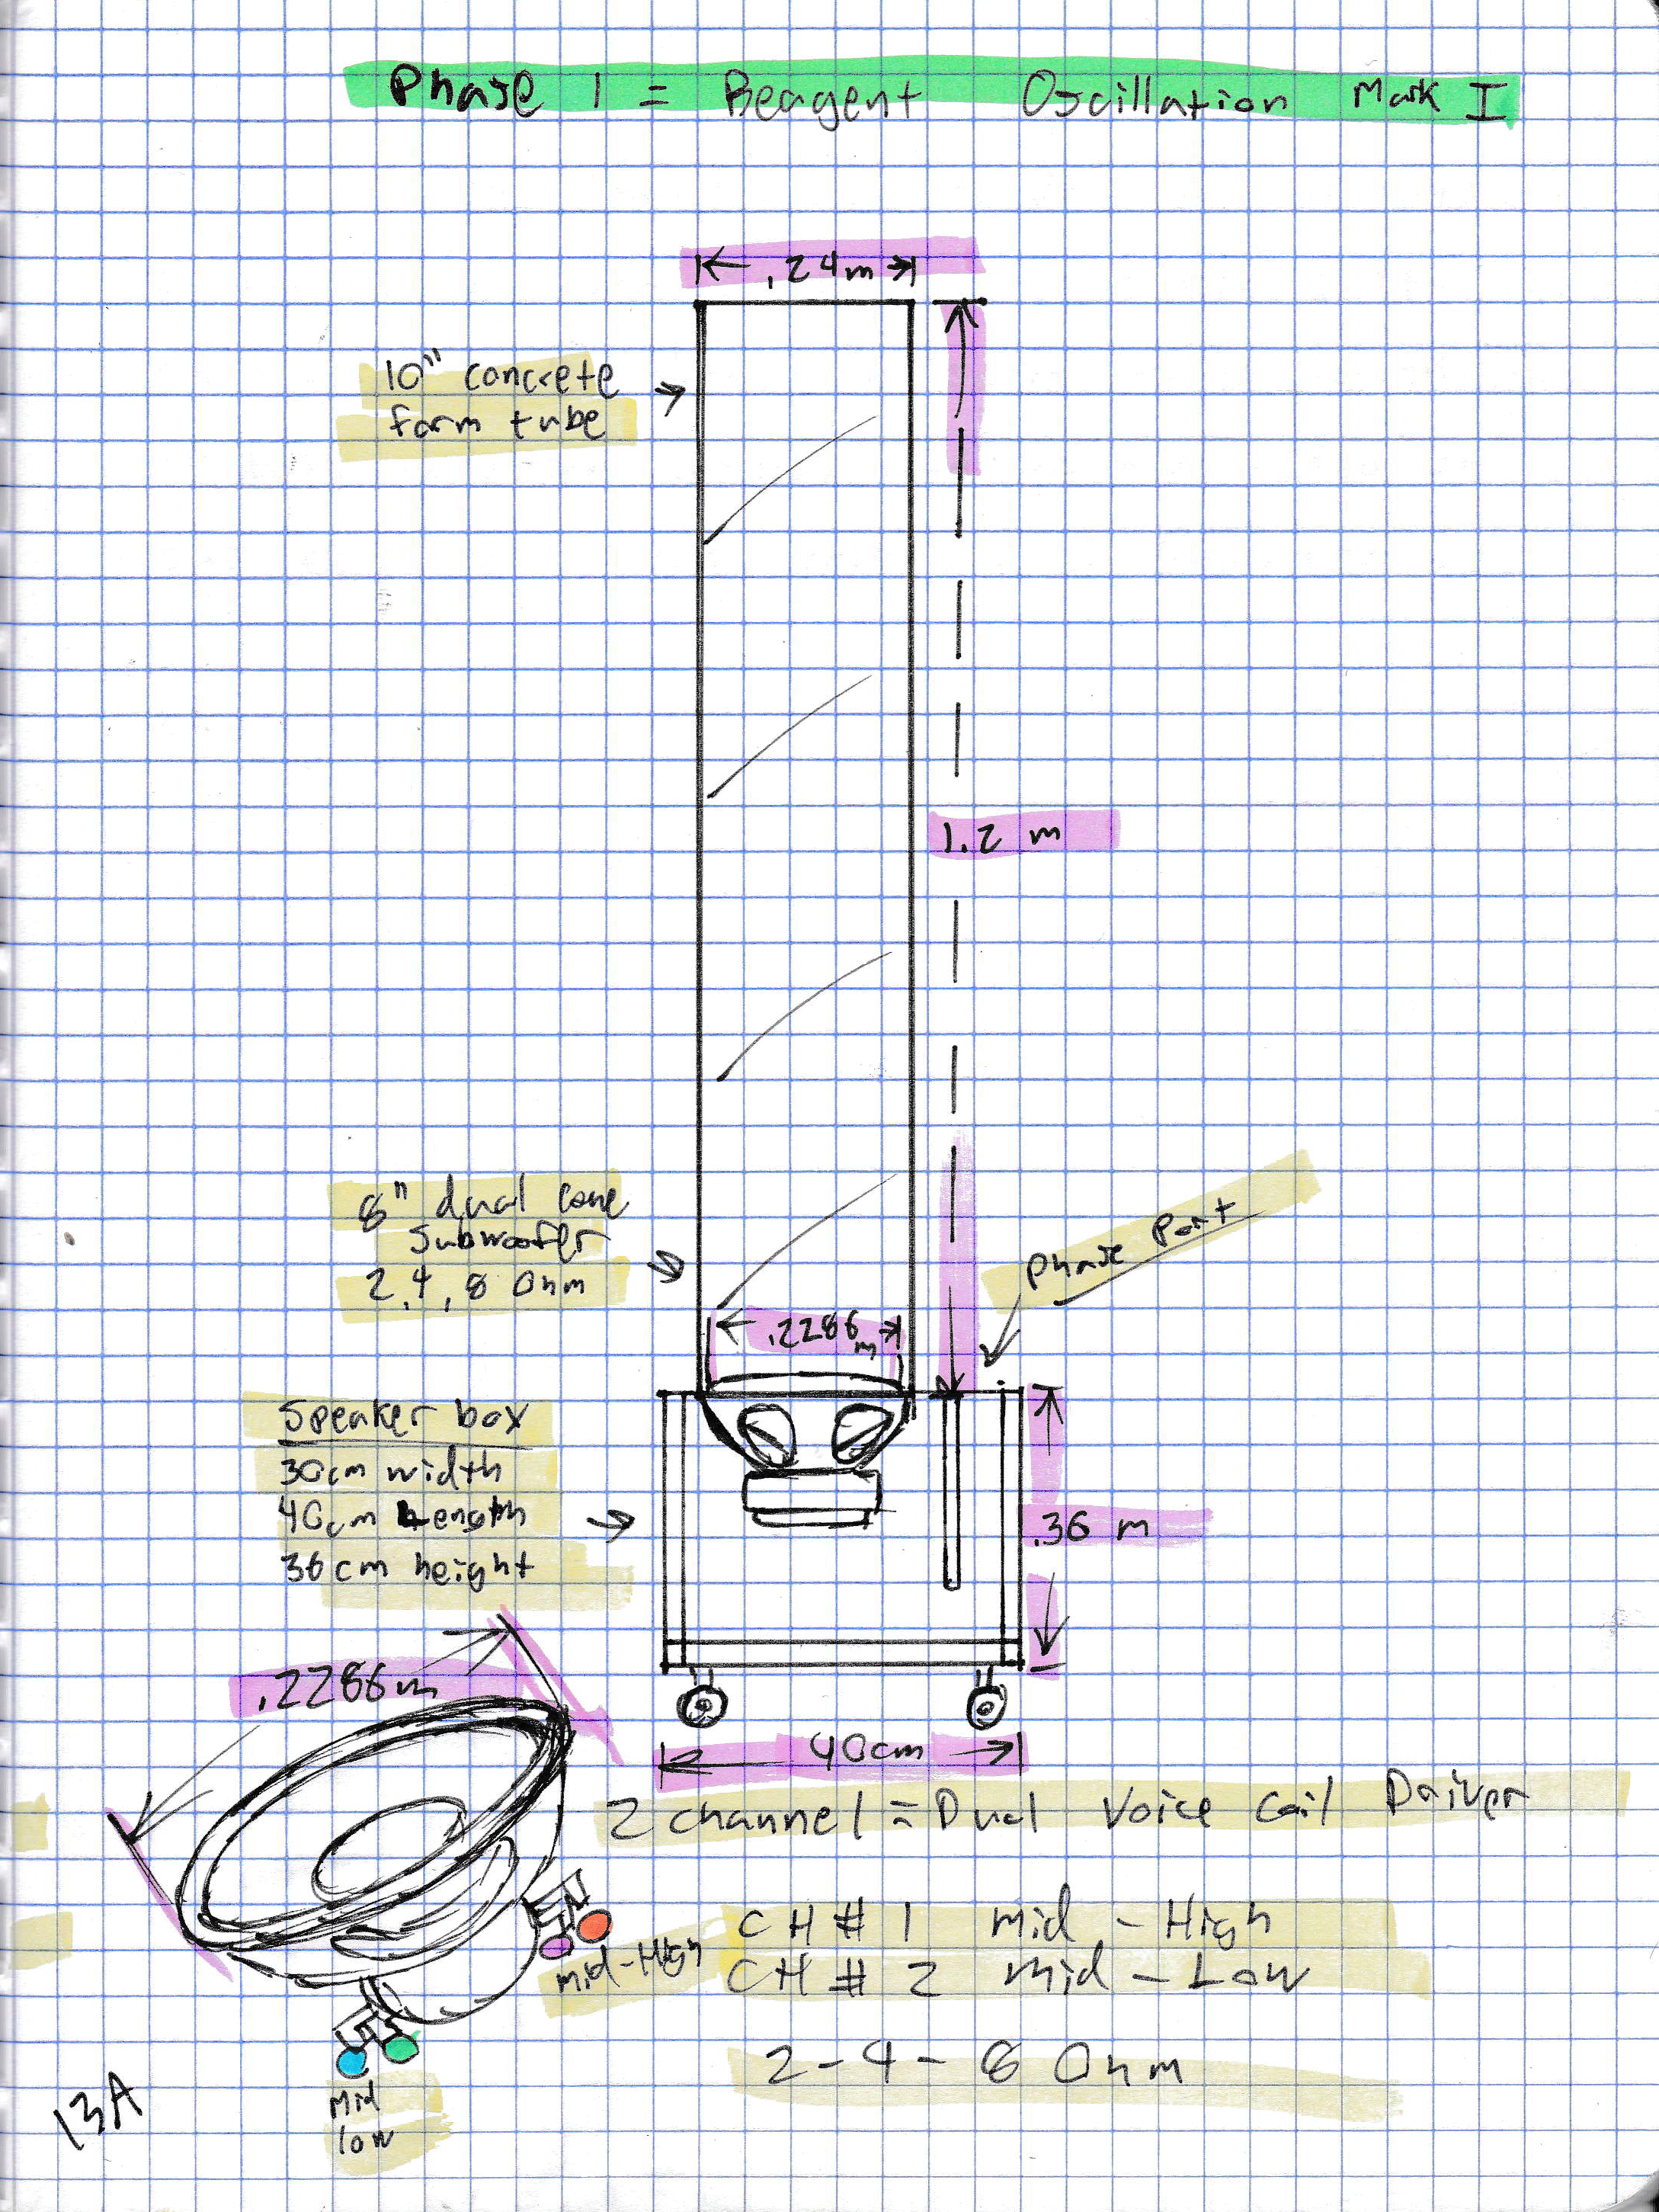 Phase 1 = Beagent Oscillation Mark I
.24m
10" concrete
form tube
1.2 m
8" dual cone
Subwoofer
2, 4, 8 Ohm
Phase Port
.2286m
Speaker box
30cm width
40cm Length
36cm height
.36 m
.2286m
40cm
2 channel = Dual Voice Coil Driver
CH # 1 Mid - High
Mid-High
CH # 2 Mid - Low
2 - 4 - 8 Ohm
Mid
low
13A